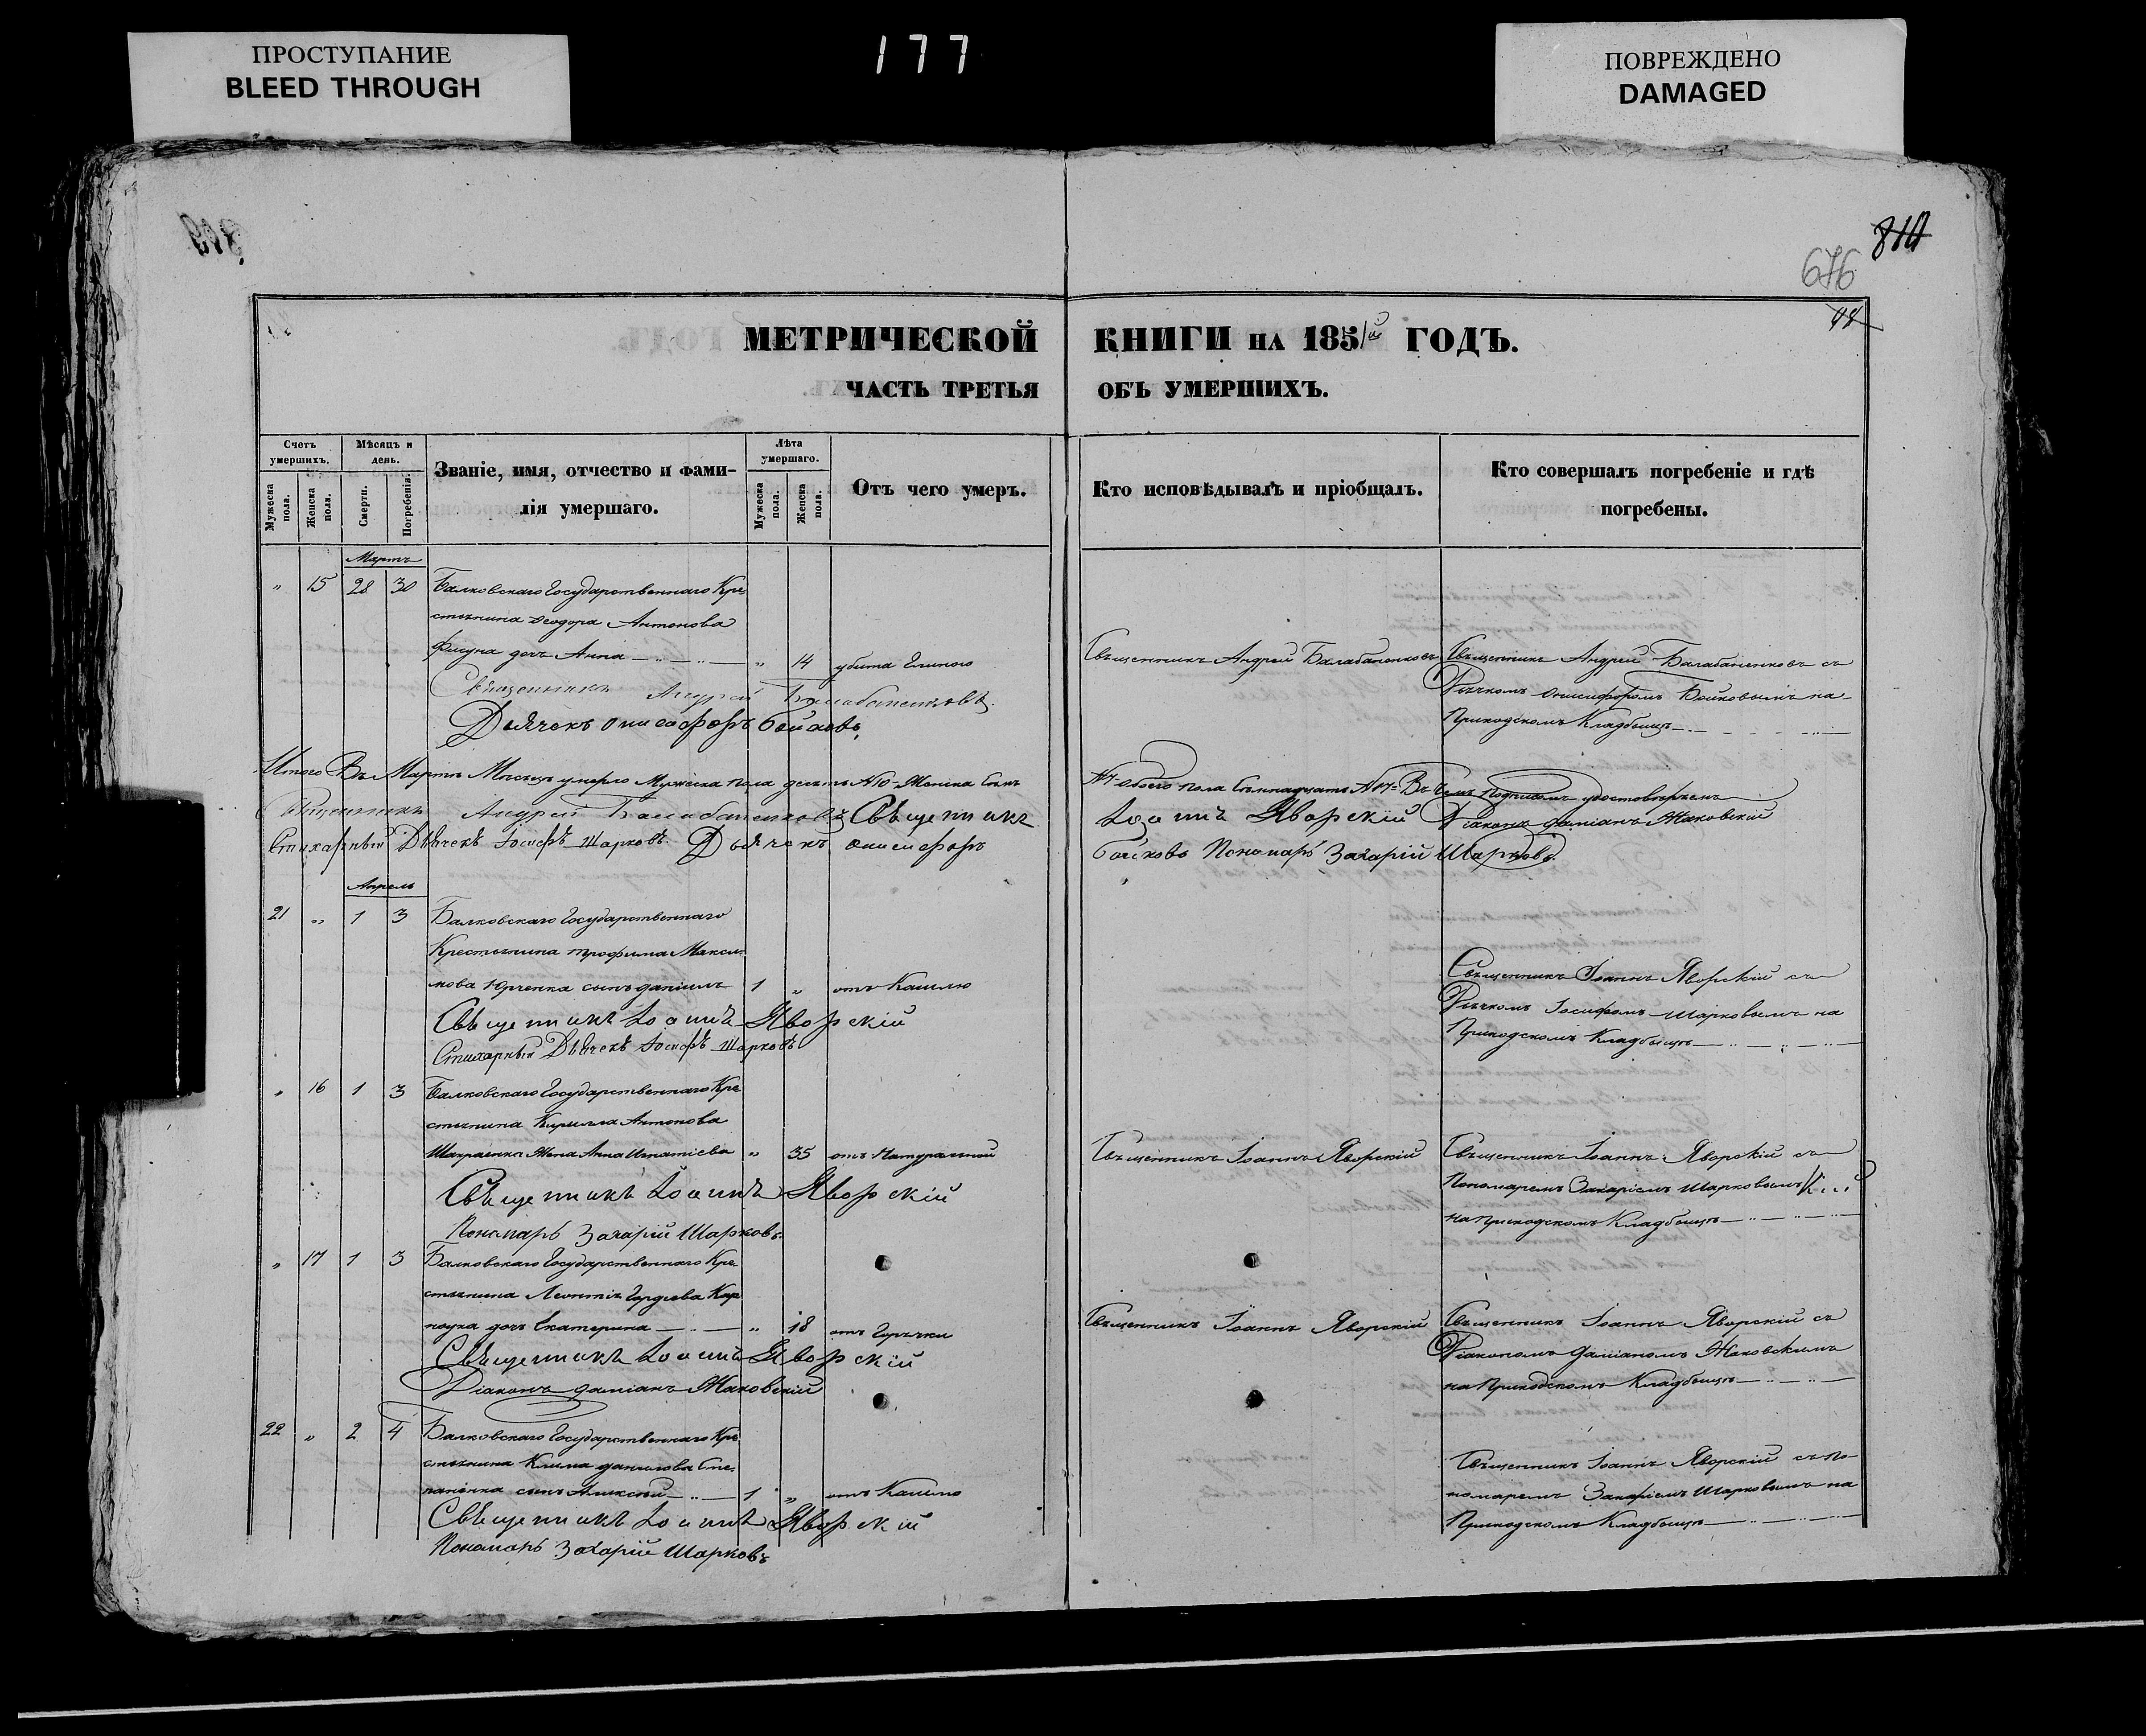 ПРОСТУПАНИЕ
BLEED THROUGH
177
ПОВРЕЖДЕНО
DAMAGED
810
676
МЕТРИЧЕСКОЙ КНИГИ НА 1851й ГОДЪ.
ЧАСТЬ ТРЕТЬЯ ОБЪ УМЕРШИХЪ.
Счетъ умершихъ.
Мужеска пола.
Женска пола.
Мѣсяцъ и день.
Смерти.
Погребенія.
Званіе, имя, отчество и фами-
лія умершаго.
Лѣта умершаго.
Мужеска пола.
Женска пола.
Отъ чего умеръ.
Кто исповѣдывалъ и пріобщалъ.
Кто совершалъ погребеніе и гдѣ
погребены.
Мартъ
" 15 28 30 Балковскаго Государственнаго Кре-
стьянина Ѳеодора Антонова
Фисуна дочь Анна " 14 убита глиною
Священникъ Андрей Балабаненковъ
Священникъ Андрей Балабаненковъ съ
Дьячкомъ Онисифоромъ Бойковымъ на
Приходскомъ Кладбищѣ
Священникъ Андрей Балабаненковъ.
Дьячекъ Онисифоръ Бойковъ,
Итого Въ Мартѣ Мѣсяцѣ умерло Мужеска пола десять №10 Женска семь
№7 обоего пола семнадцать №17 Въ чемъ подписомъ удостовѣряемъ
Священникъ Андрей Балабаненковъ Священникъ
Іоаннъ Яворскій Діаконъ Даміанъ Жаковскій
Стихарный Дьячекъ Іосифъ Шарковъ Дьячекъ Онисифоръ
Бойковъ Пономарь Захарій Шарковъ.
Апрель
21 " 1 3 Балковскаго Государственнаго
Крестьянина Трофима Макси-
мова Юрченка сынъ Даніилъ 1 " отъ Кашлю
Священникъ Іоаннъ Яворскій съ
Дьячкомъ Іосифомъ Шарковымъ на
Приходскомъ Кладбищѣ
Священникъ Іоаннъ Яворскій
Стихарный Дьячекъ Іосифъ Шарковъ
" 16 1 3 Балковскаго Государственнаго Кре-
стьянина Кирилла Антонова
Жена Анна Игнатіева " 35 отъ Натуральной
Священникъ Іоаннъ Яворскій
Священникъ Іоаннъ Яворскій съ
Пономаремъ Захаріемъ Шарковымъ
на Приходскомъ Кладбищѣ
Священникъ Іоаннъ Яворскій
Пономарь Захарій Шарковъ.
" 17 1 3 Балковскаго Государственнаго Кре-
стьянина Леонтія Гордѣева Кар-
поука дочь Екатерина " 18 отъ Горячки
Священникъ Іоаннъ Яворскій
Священникъ Іоаннъ Яворскій съ
Діакономъ Даміаномъ Жаковскимъ
на Приходскомъ Кладбищѣ
Священникъ Іоаннъ Яворскій
Діаконъ Даміанъ Жаковскій
22 " 2 4 Балковскаго Государственнаго Кре-
стьянина Клима Данилова Сте-
паненка сынъ Алексѣй 1 " отъ Кашлю
Священникъ Іоаннъ Яворскій съ По-
номаремъ Захаріемъ Шарковымъ на
Приходскомъ Кладбищѣ
Священникъ Іоаннъ Яворскій
Пономарь Захарій Шарковъ